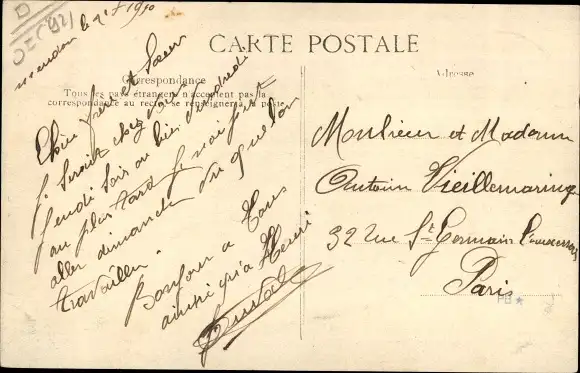 OZ (92)
meudon le 2 1910
CARTE POSTALE
Correspondance
Tous les pays étrangers n'acceptent pas la
correspondance au recto, se renseigner à la poste
Adresse
Chère frère et Sœur
Je serait chez vous
jeudi soir ou bien vendredi
au plus tard Je vais pas
aller dimanche vu que l'on
travailler
Bonjour a Tous
ainsi qu'a Henri
Duval
Monsieur et Madame
Antoin Vieillemaringe
32 rue St Germain l'auxerrois
Paris
PB